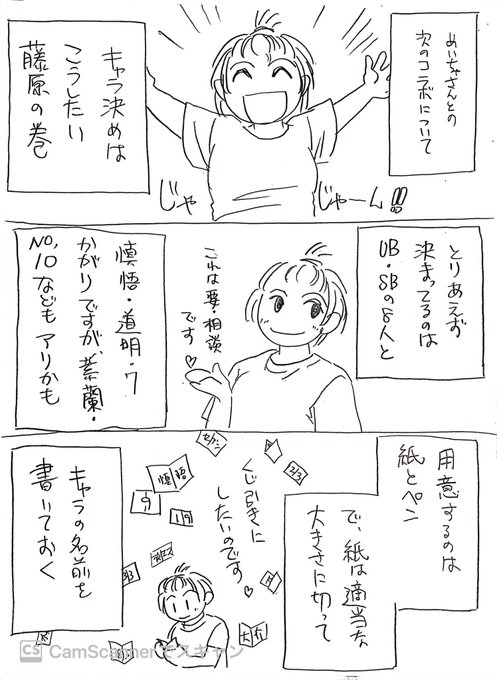 めいちゃさんとの
次のコラボについて
キャラ決めは
こうしたい
藤原の巻
じゃ
じゃーん!!
とりあえず
決まってるのは
UB・SBの8人と
これは要・相談
です♡
慎悟・道明・7
かがりですが、紫蘭・
No,10などもアリかも
用意するのは
紙とペン
で、紙は適当な
大きさに切って
くじ引きに
したいのです♡
キャラの名前を
書いておく
慎悟
9
19
CS CamScannerでスキャン